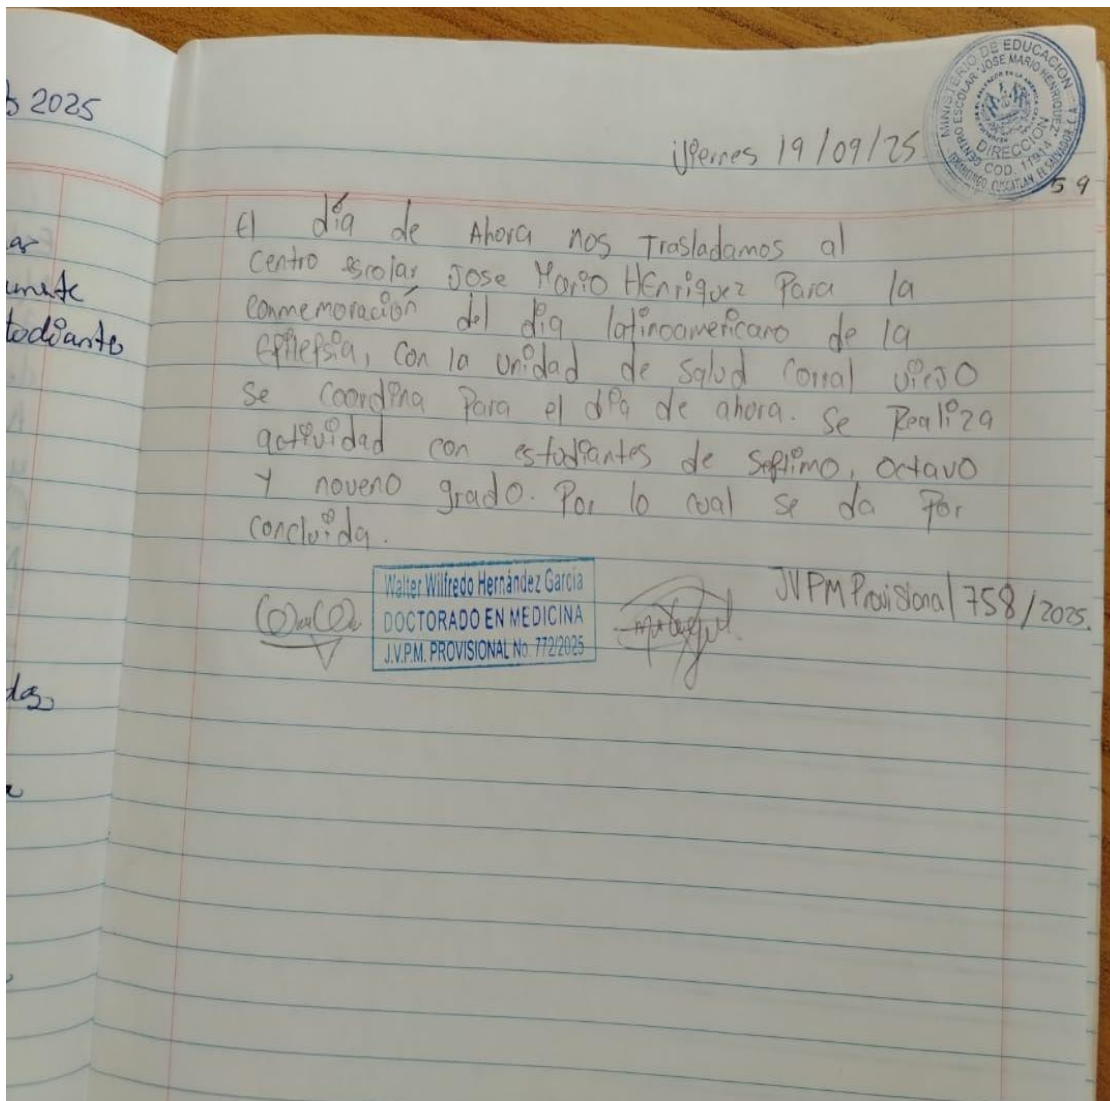 2025
ar
todiante
das
MINISTERIO DE EDUCACION
CENTRO ESCOLAR "JOSE MARIO HENRIQUEZ"
DIRECCION
COD. 11914
CUSCATLAN EL SALVADOR, C.A.
Viernes 19/09/25
59
El día de Ahora nos Trasladamos al
centro escolar Jose Mario HEnriquez Para la
conmemoración del dia latinoamericano de la
Epilepsia, con la unidad de salud corral viejo
se coordina Para el dia de ahora. se Realiza
actividad con estudiantes de septimo, octavo
Y noveno grado. Por lo cual se da Por
concluida.
Walter Wilfredo Hernández García
DOCTORADO EN MEDICINA
J.V.P.M. PROVISIONAL No. 772/2025
JVPM Provisional 758/2025.